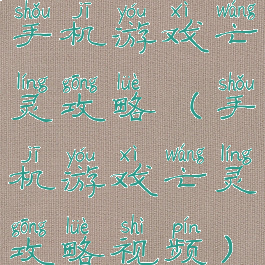 shǒu jī yóu xì wáng
手机游戏亡
líng gōng lüè shǒu
灵攻略（手
jī yóu xì wáng líng
机游戏亡灵
gōng lüè shì pín
攻略视频）